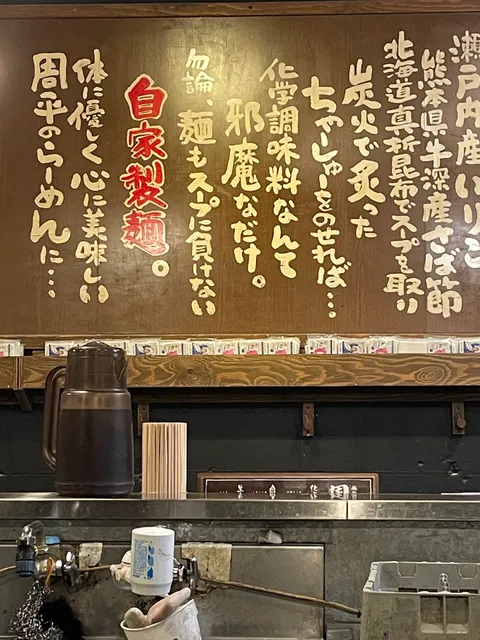 瀬戸内産いりこ
熊本県牛深産さば節
北海道真折昆布でスープを取り
炭火で炙った
ちゃーしゅーをのせれば…
化学調味料なんて
邪魔なだけ。
勿論、麺もスープに負けない
自家製麺。
体に優しく心に美味しい
周平のらーめんに…